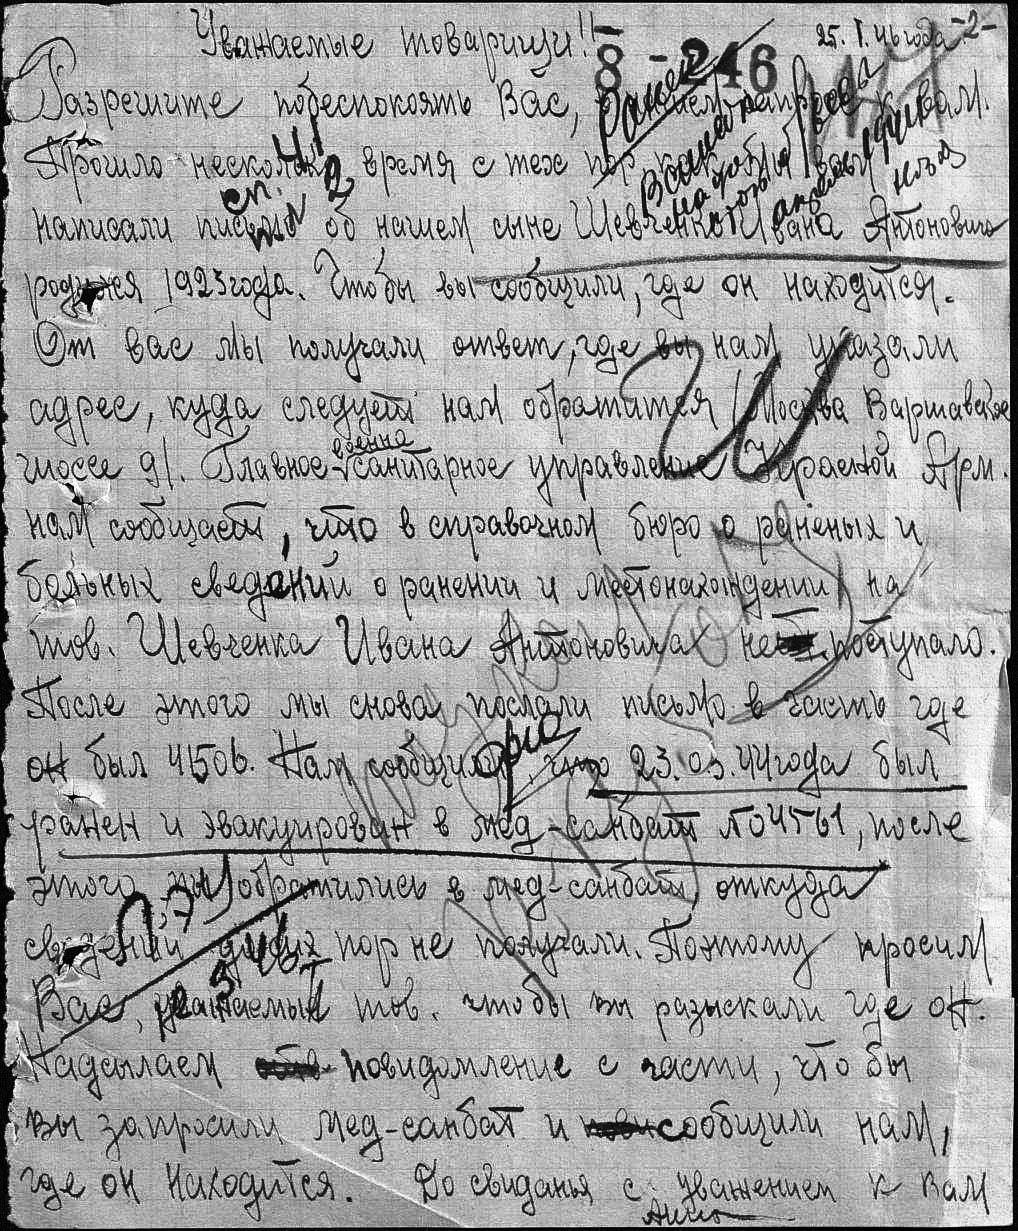 25.I.46 года -2-
Уважаемые товарищи!!
8-246
Разрешите побеспокоять Вас, к вам.
Прошло время с тех пор как
написали письмо об нашем сыне Шевченко Ивана Антоновича
родився 1923 года. Чтобы вы сообщили, где он находится.
От вас мы получали ответ, где вы нам указали
адрес, куда следует нам обратится Москва Варшавское
шоссе 91. Главное военно санитарное управление Красной Арм.
нам сообщает, что в справочном бюро о раненых и
больных сведений о ранении и местонахождении на
тов. Шевченка Ивана Антоновича не поступало.
После этого мы снова послали письмо в часть где
он был 41506. Нам сообщили, что 23.03.44 года был
ранен и эвакуирован в мед-санбат №04561, после
этого мы обратились в мед-санбат, откуда
сведений пор не получали. Поэтому просим
Вас, уважаемый тов. чтобы вы разыскали где он.
Надсылаем повидомление с части, что бы
вы запросили мед-санбат и сообщили нам,
где он находится. До свиданья с уважением к Вам